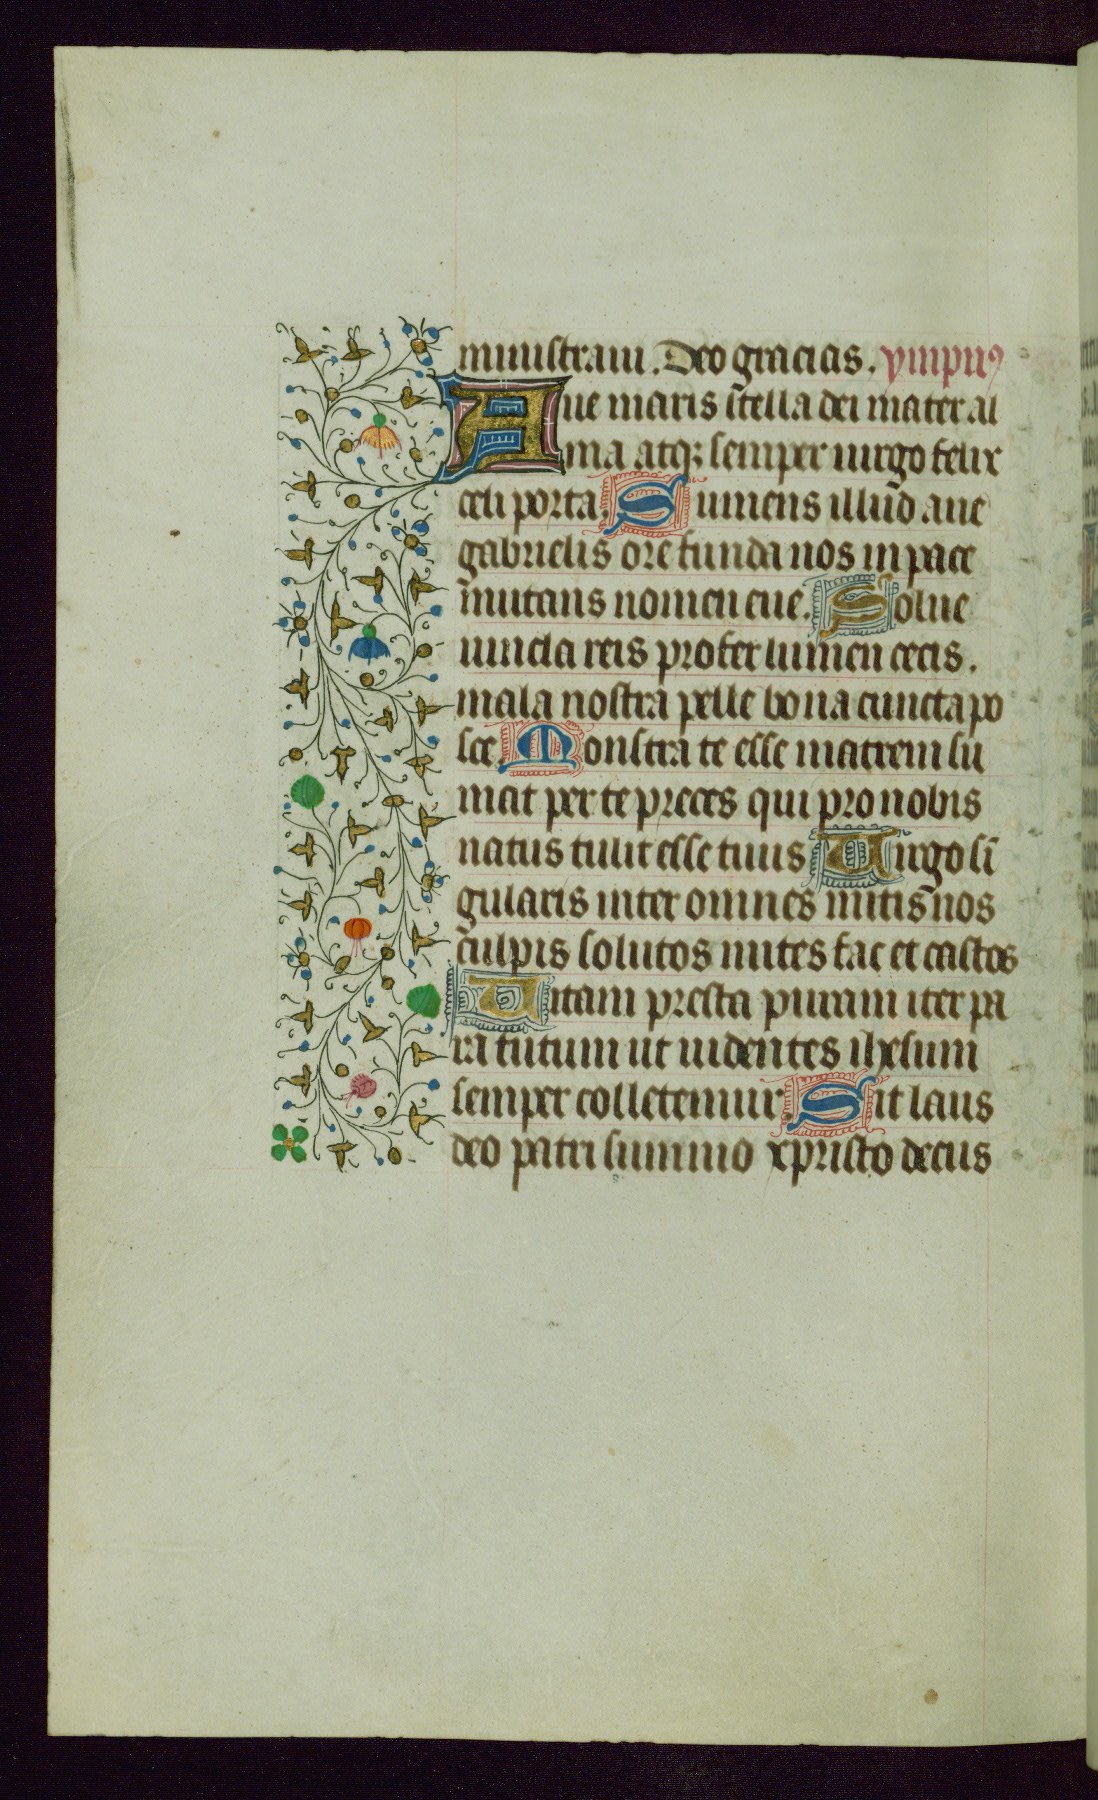 ministram. Deo gracias. ympnꝰ
Aue maris stella dei mater al
ma atqꝫ semper uirgo felix
celi porta. Sumens illud aue
gabrielis ore funda nos in pace
mutans nomen eue. Solue
uincla reis profer lumen cecis.
mala nostra pelle bona cuncta po
sce. Monstra te esse matrem su
mat per te preces qui pro nobis
natus tulit esse tuus Uirgo sī
gularis inter omnes mitis nos
culpis solutos mites fac et castos
Uitam presta puram iter pa
ra tutum ut uidentes ihesum
semper colletemur. Sit laus
deo patri summo xpristo decus